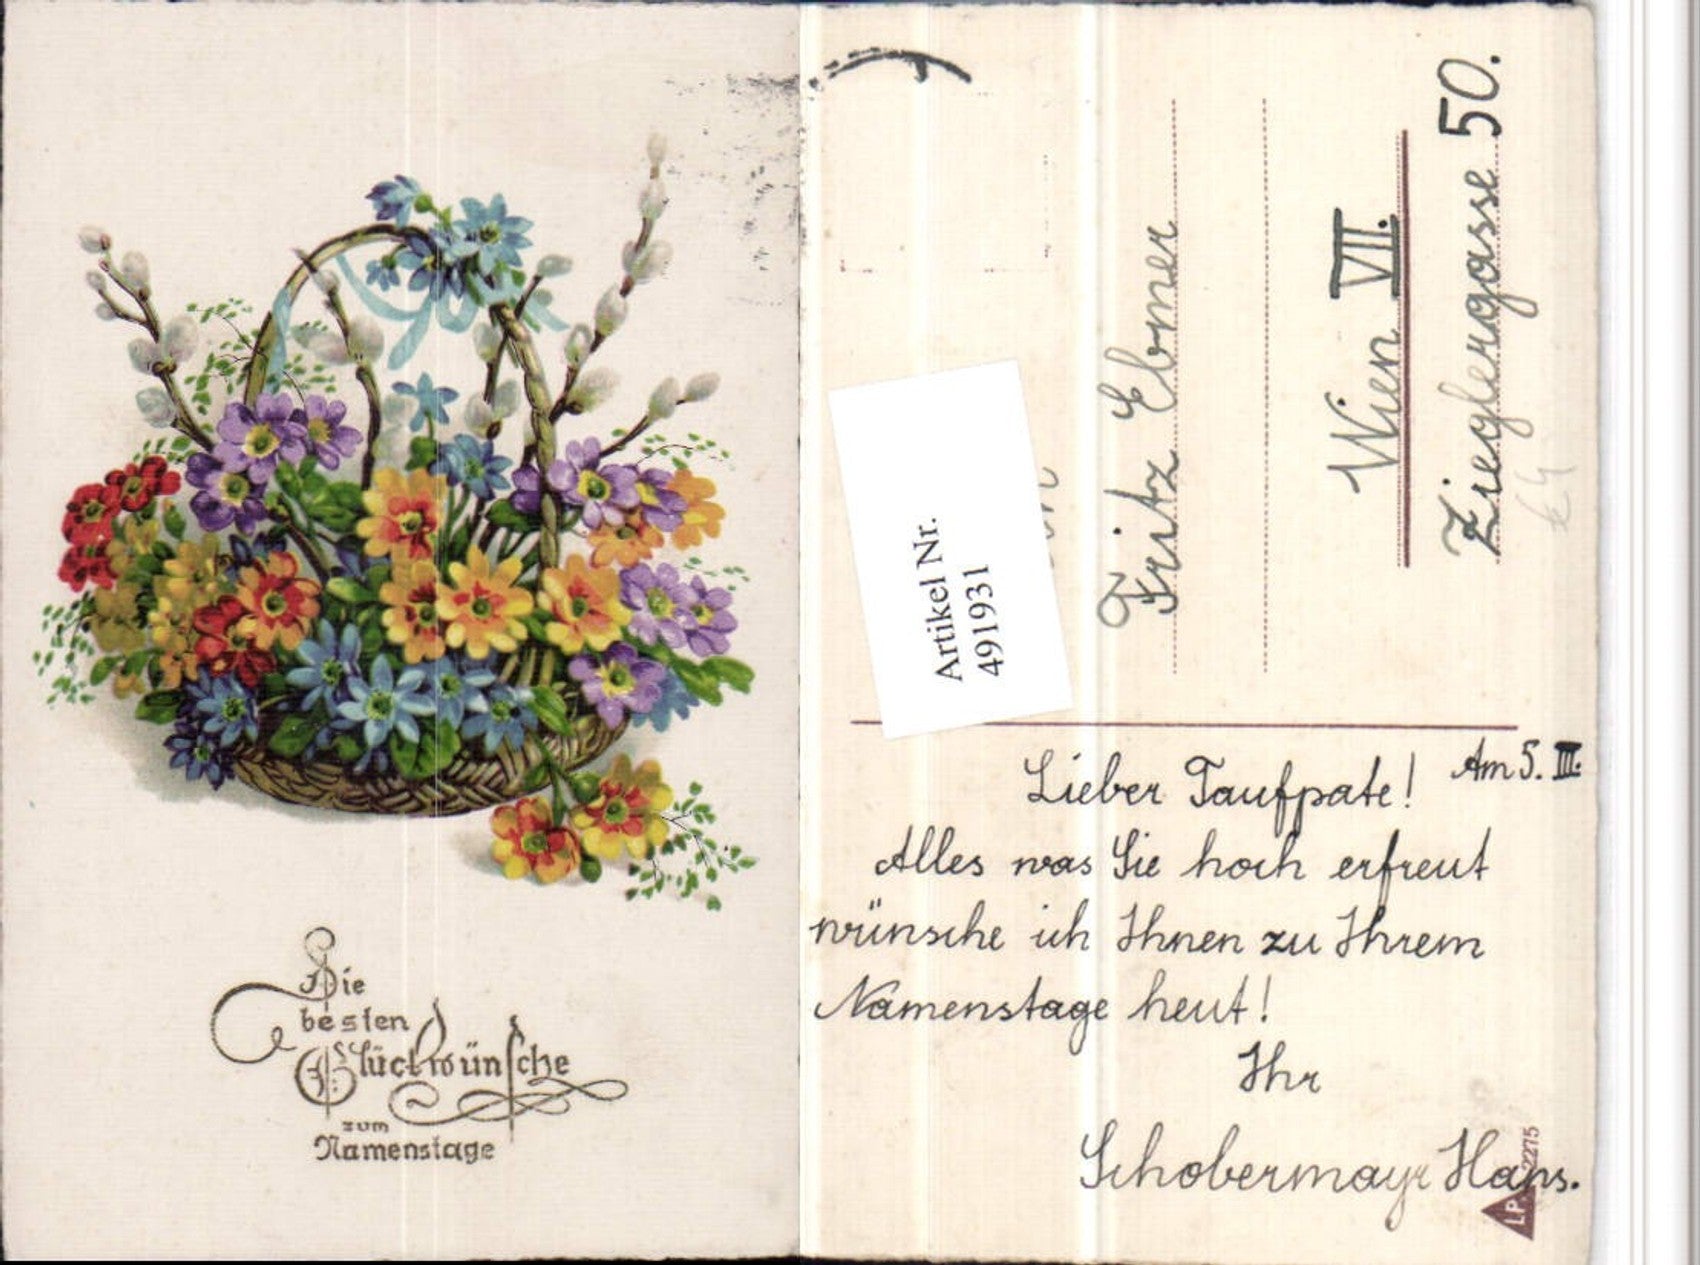 Die
besten
Glückwünsche
zum
Namenstage
Artikel Nr.
491931
Fritz Ebner
Wien VII.
Zieglergasse 50.
Am 5. III.
Lieber Taufpate!
Alles was Sie hoch erfreut
wünsche ich Ihnen zu Ihrem
Namenstage heut!
Ihr
Schobermayr Hans.
LP 2275